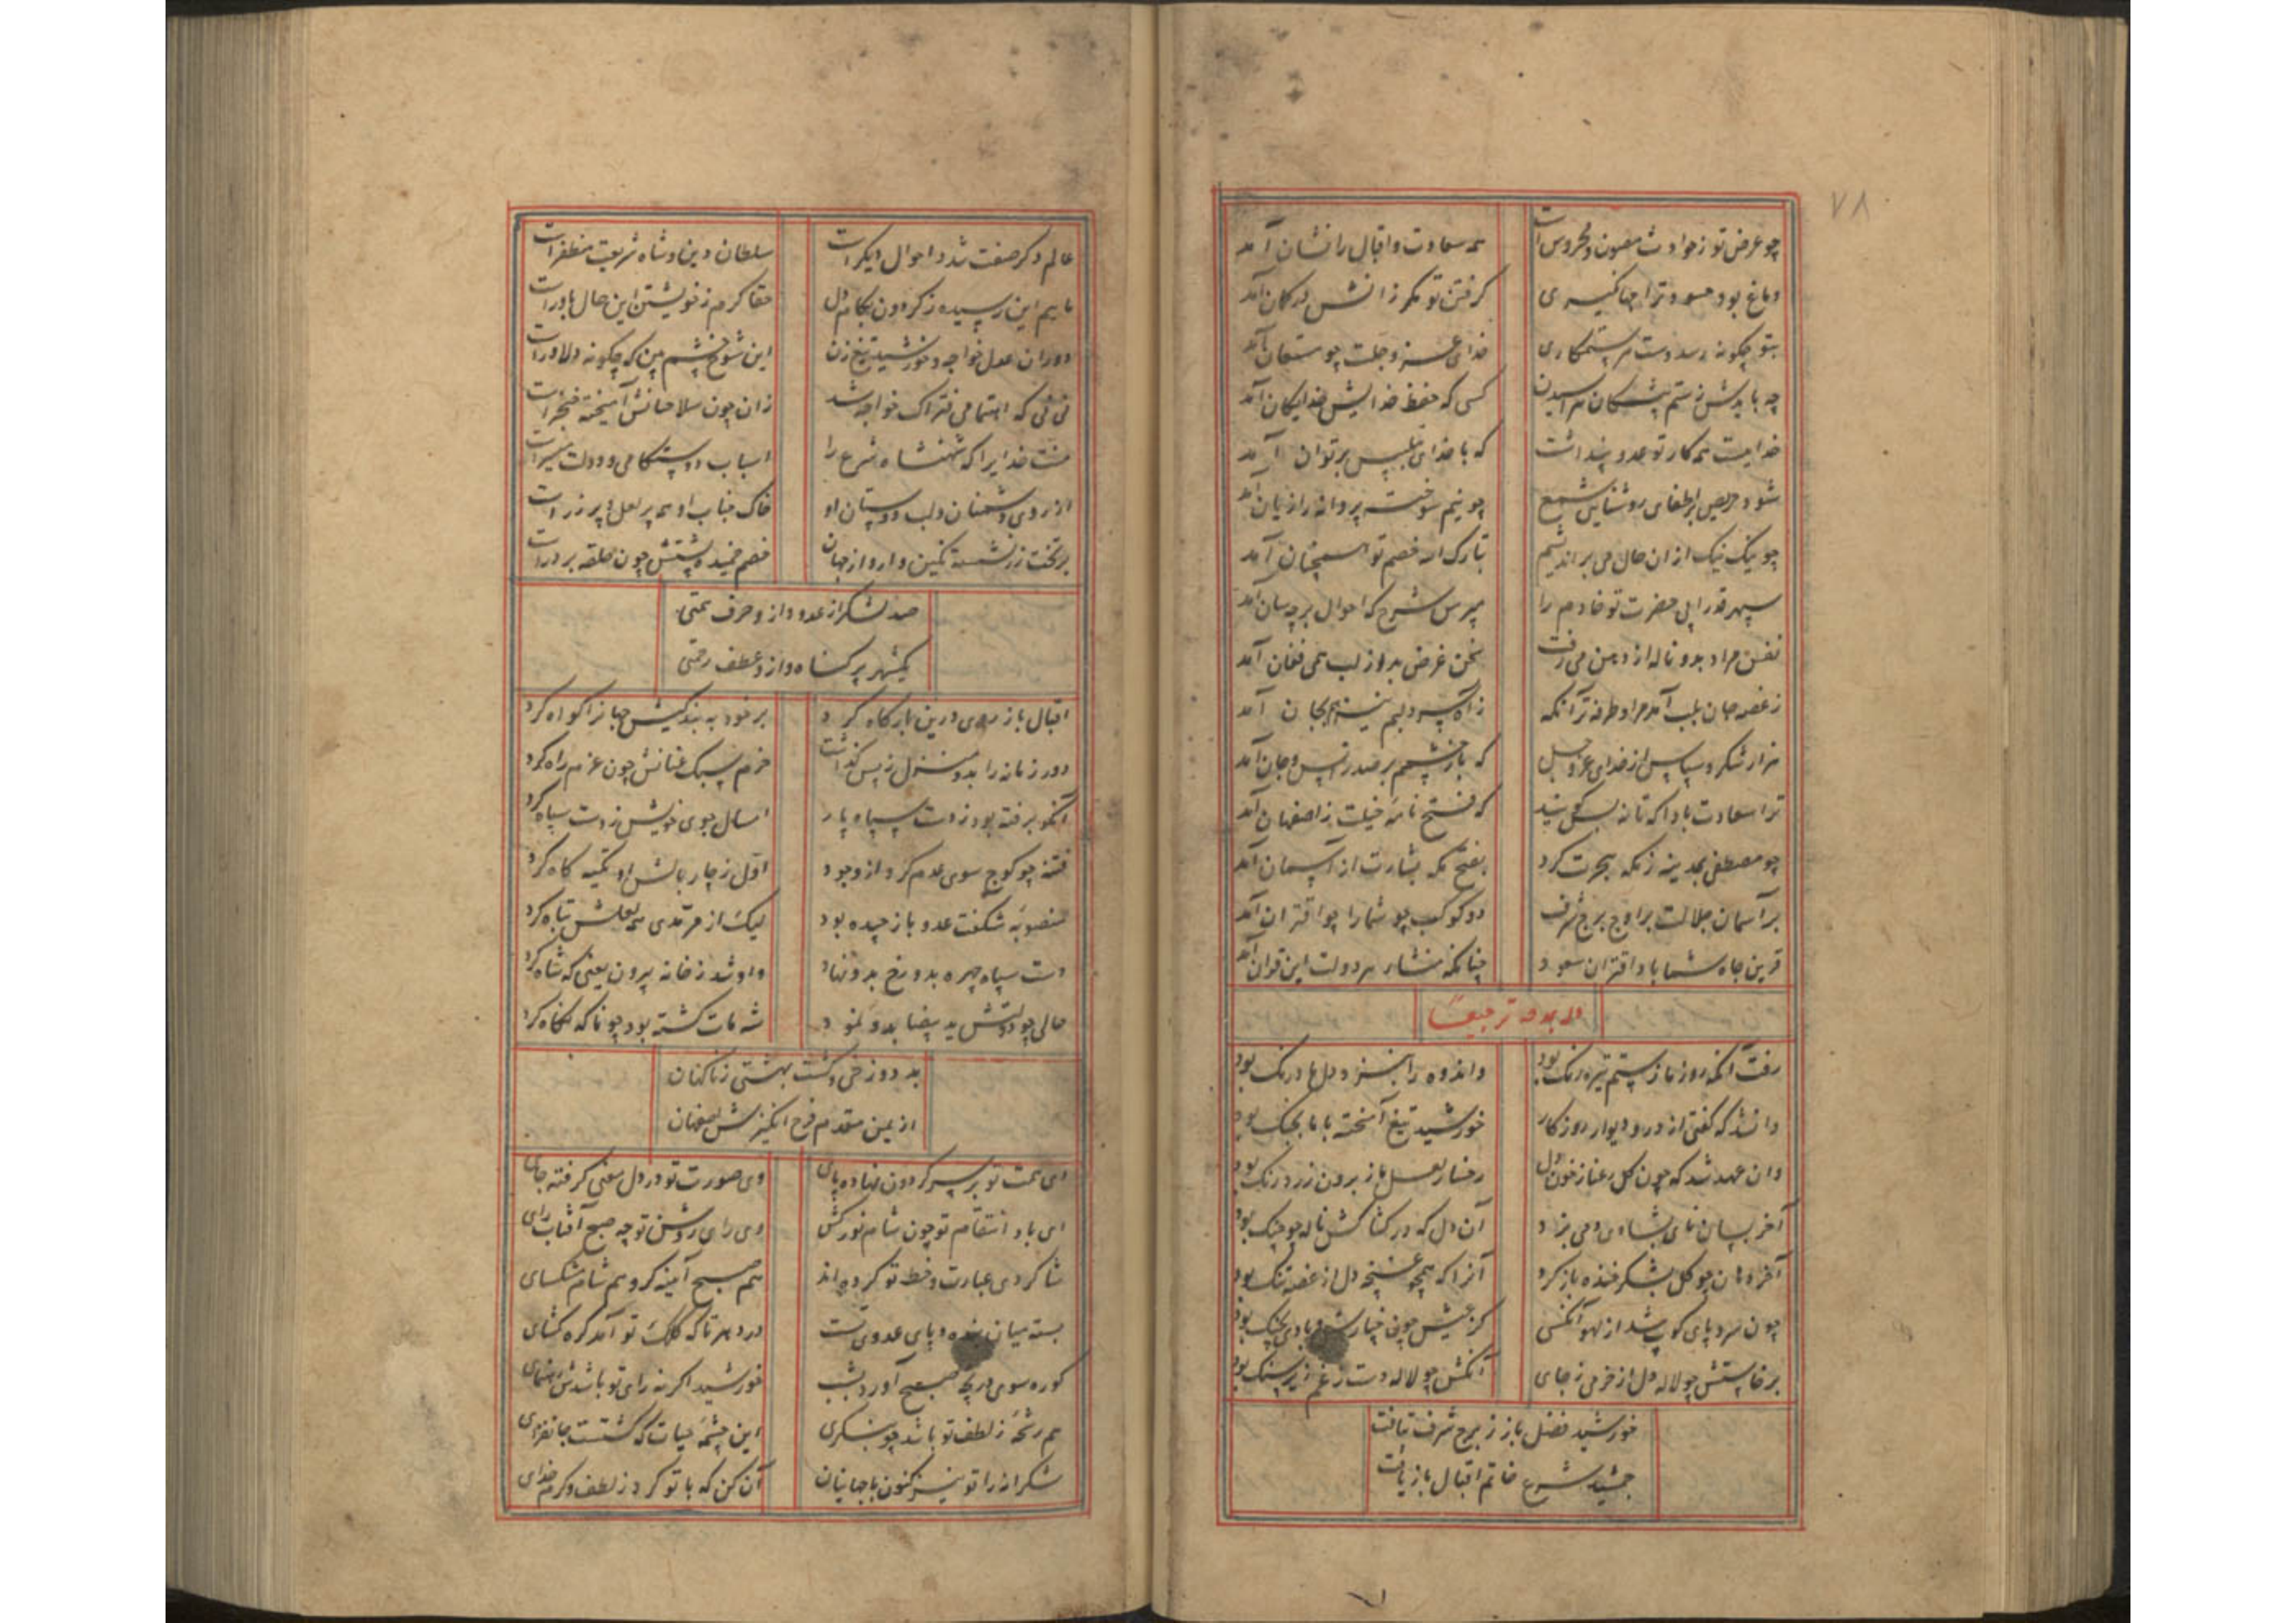 ۷۸
چو عرض تو ز حوادث مصون و محروس است همه سعادت و اقبال را نشان آمد
دماغ بود حسود ترا گرفتن تو مگر زانش در گمان آمد
بتو چگونه رسد دست هر ستمکاری خدای عز و جلت چو مستعان آمد
چه بایدش ز ستم پیشگان هراسیدن کسی که حفظ خدایش خدایگان آمد
خدایست همه کار تو عدو پنداشت که با خدای بتلبیس بر توان آمد
شود حریص بر اطفای روشنایی شمع چو نیم سوخته پروانه را زیان آمد
چو نیک نیک از ان حال می براندیشم تبارک الله خصم تو آنچنان آمد
سپهر قدرا بی حضرت تو خادم را مپرس شرح که احوال بر چه سان آمد
نفس مراد بد و ناله از دهن می رفت سخن غرض بد و از لب همی فغان آمد
ز غصه جان بلب آمد مرا و طرفه تر آنکه ز آه سرد لبم نیز هم بجان آمد
هزار شکر و سپاس از خدای عز و جل که باز چشمم بر صدر انس و جان آمد
ترا سعادت باد که فتح نامه خیلت ز اصفهان آمد
چو مصطفی بمدینه ز مکه هجرت کرد بفتح مکه بشارت از آسمان آمد
بر آسمان جلالت بر اوج برج شرف دو کوکب چو شما را چو اقتران آمد
قرین جاه شما باد اقتران سعود چنانکه منشاء هر دولت این قران آمد
وله یمدحه ترجیعا
رفت آنکه روز ما ز ستم تیره رنگ بود و اندوه را بنزد دل ما درنگ بود
وان شد که گفتی از در و دیوار روزگار خورشید تیغ آهخته با ما بجنگ بود
وان عهد شد که چون گل رعنا ز خون دل رخسار لعل ما ز برون زرد رنگ بود
آخر بسان نای بشادی دمی بزد آن دل که در کشاکش ناله چو چنگ بود
آخر دهان چو گل بشکر خنده باز کرد آنرا که همچو غنچه دل از غصه تنگ بود
چون سرو پای کوب شد از لهو آنکسی کز عیش چون چنار
برخاستش چو لاله دل از خرمی ز جای آنکش چو لاله دست ز غم زیر سنگ بود
خورشید فضل باز ز برج شرف بتافت
جمشید شرع خاتم اقبال باز یافت
عالم دگر صفت شد و احوال دیگر است سلطان دین و شاه شریعت مظفر است
مائیم این رسیده ز گردون بکام دل حقا گرم ز خویشتن این حال باور است
دوران عدل خواجه و خورشید تیغ زن این شوخ چشم بین که چگونه دلاور است
نی نی که اهتمامی فتراک خواجه شد زان چون سلاحیانش آهیخته خنجر است
منت خدایرا که شهنشاه شرع را اسباب دوستکامی و دولت میسر است
از روی دشمنان و لب دوستان او خاک جناب او همه پر لعل و پر زر است
بر تخت زر نشسته نگین وار و از جهان خصم خمیده پشتش چون حلقه بر در است
صد لشکر از عدو و ازو حرف همتی
یکشهر پر گناه و ازو عطف رحمتی
اقبال باز روی درین بارگاه کرد بر خود به بندگیش جهانرا گواه کرد
دور زمانه را بدو منزل ز پس گذاشت خرم سبک عنانش چون عزم راه کرد
آنکو برفته بود ز دست سپاه پار امسال جوی خویش ز دست سپاه کرد
فتنه چو کوچ سوی عدم کرد از وجود اول ز چار بالش او تکیه گاه کرد
منصوبه شگفت عدو باز چیده بود لیک از مقدمی همه لعبش تباه کرد
دست سیاه چهره بدو رخ بدو نهاد واو شد ز خانه بیرون یعنی که شاه کرد
حالی چو دولتش ید بیضا بدو نمود شه مات گشته بود چو ناگه نگاه کرد
بد دوزخی و گشت بهشتی ز ناگهان
از یمن مقدم فرح انگیزش اصفهان
ای همت تو بر سر گردون نهاده پای وی صورت تو در دل معنی گرفته جای
ای باد انتقام تو چون شام نور کش وی رای روشن تو چو صبح آفتاب زای
شاگردی عبارت و خط تو کرده اند هم صبح آینه گر و هم شام مشکسای
بسته میان و پای عدوی تست در دهر تا که کلک تو آمد گره گشای
کو ره سوی دریچه صبح آورد بشب خورشید اگر نه رای تو باشدش رهنمای
هم رشحه ز لطف تو باشد چو بنگری این چشمه حیات که گشتست جانفزای
شکرانه را تو نیز کنون با جهانیان آن کن که با تو کرد ز لطف و کرم خدای